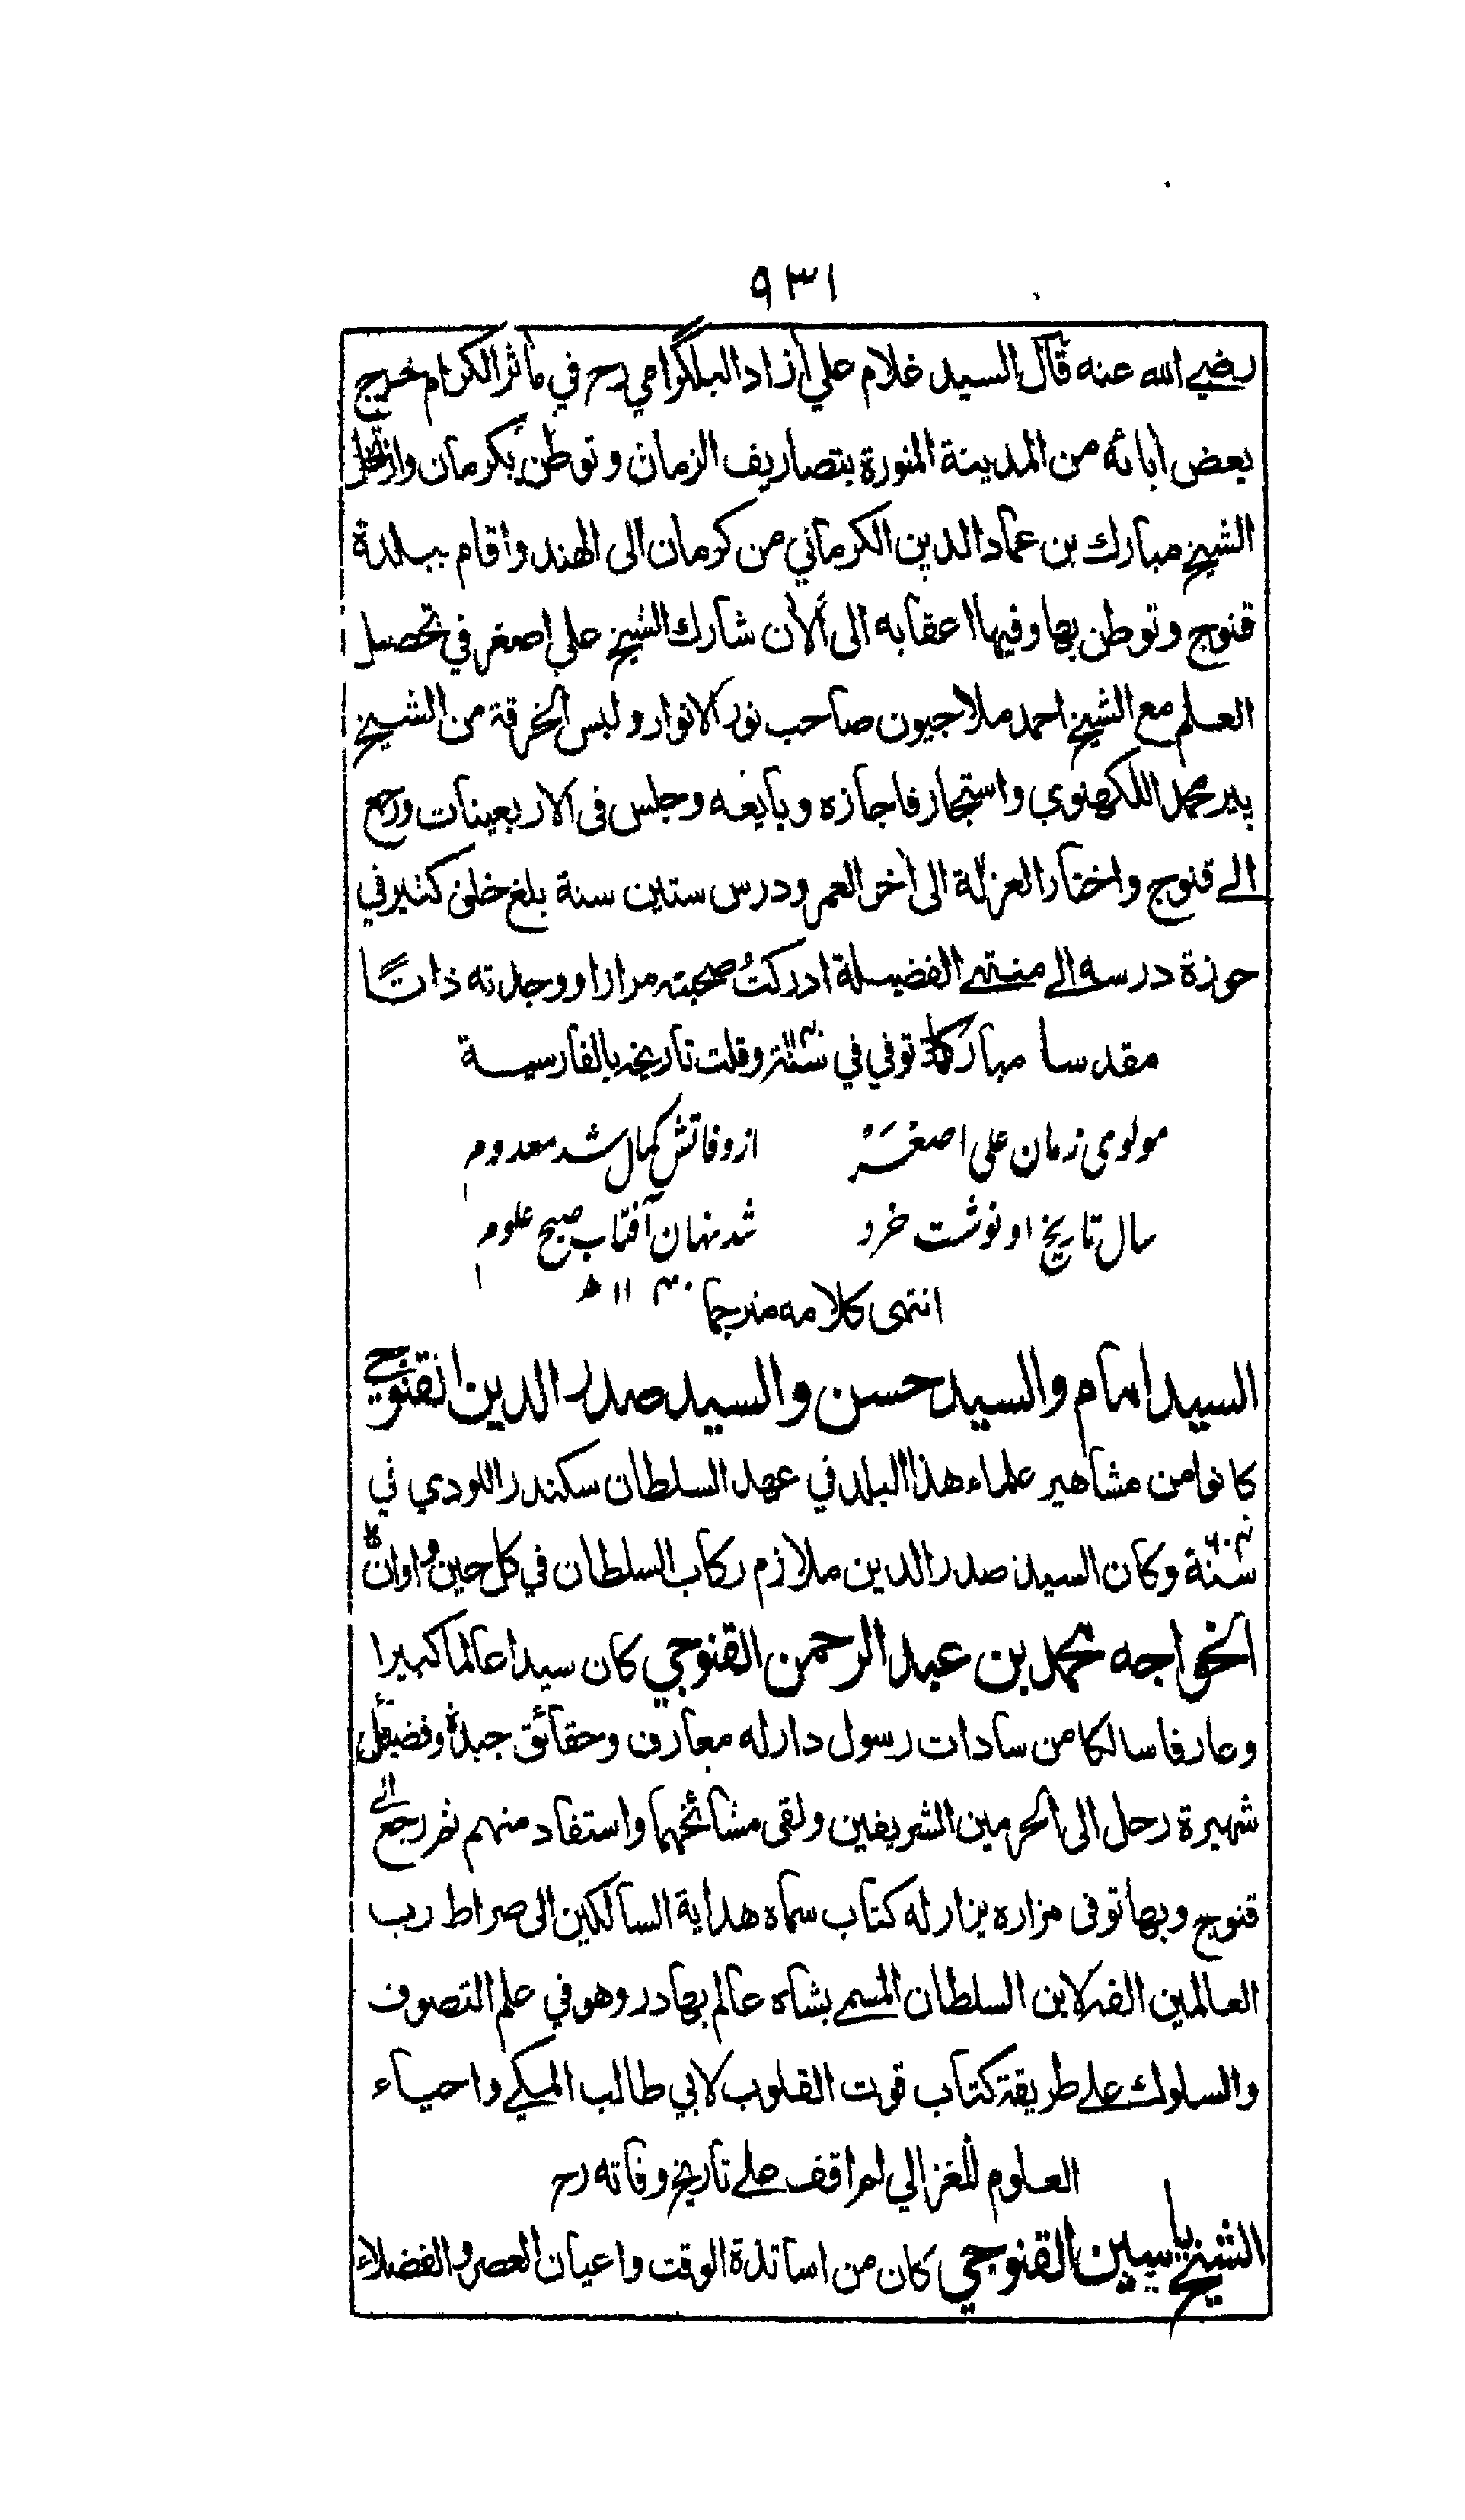 ٩٣١
رضي الله عنه قال السيد غلام علي آزاد البلگرامي رح في مآثر الكرام خرج
بعض ابائه من المدينة المنورة بتصاريف الزمان وتوطن بكرمان وارتحل
الشيخ مبارك بن عماد الدين الكرماني من كرمان الى الهند واقام ببلدة
قنوج وتوطن بها وفيها اعقابه الى الآن شارك الشيخ علي اصغر في تحصيل
العلم مع الشيخ احمد ملا جيون صاحب نور الانوار ولبس الخرقة من الشيخ
پير محمد اللكهنوي واستجاز فاجازه وبايعه وجلس فى الاربعينات ورجع
الى قنوج واختار العزلة الى آخر العمر ودرس ستين سنة بلغ خلق كثير في
حوزة درسه الى منتهى الفضيلة ادركتُ صحبته مرارا ووجدته ذاتًا
مقدسا مباركا توفي في سنة وقلت تاريخه بالفارسية
مولوى زمان على اصغر از وفاتش كمال شد معدوم
سال تاريخ او نوشت خرد شد نهان آفتاب صبح علوم
انتهى كلامه مترجما ١١٤٠ه
السيد امام والسيد حسن والسيد صدر الدين القنوجي
كانوا من مشاهير علماء هذا البلد في عهد السلطان سكندر اللودي في
سنة وكان السيد صدر الدين ملازم ركاب السلطان في كل حين واوان
الخواجه محمد بن عبد الرحمن القنوجي كان سيدا عالما كبيرا
وعارفا سالكا من سادات رسول دار له معارف وحقائق جيدة وفضيلة
شهيرة رحل الى الحرمين الشريفين ولقى مشائخهما واستفاد منهم ثم رجع الى
قنوج وبها توفى مزاره يزار له كتاب سماه هداية السالكين الى صراط رب
العالمين الفه لابن السلطان المسمى بشاه عالم بهادر وهو في علم التصوف
والسلوك على طريقة كتاب قوت القلوب لابي طالب المكي واحياء
العلوم للغزالي لم اقف على تاريخ وفاته رح
الشيخ ياسين القنوجي كان من اساتذة الوقت واعيان العصر والفضلاء